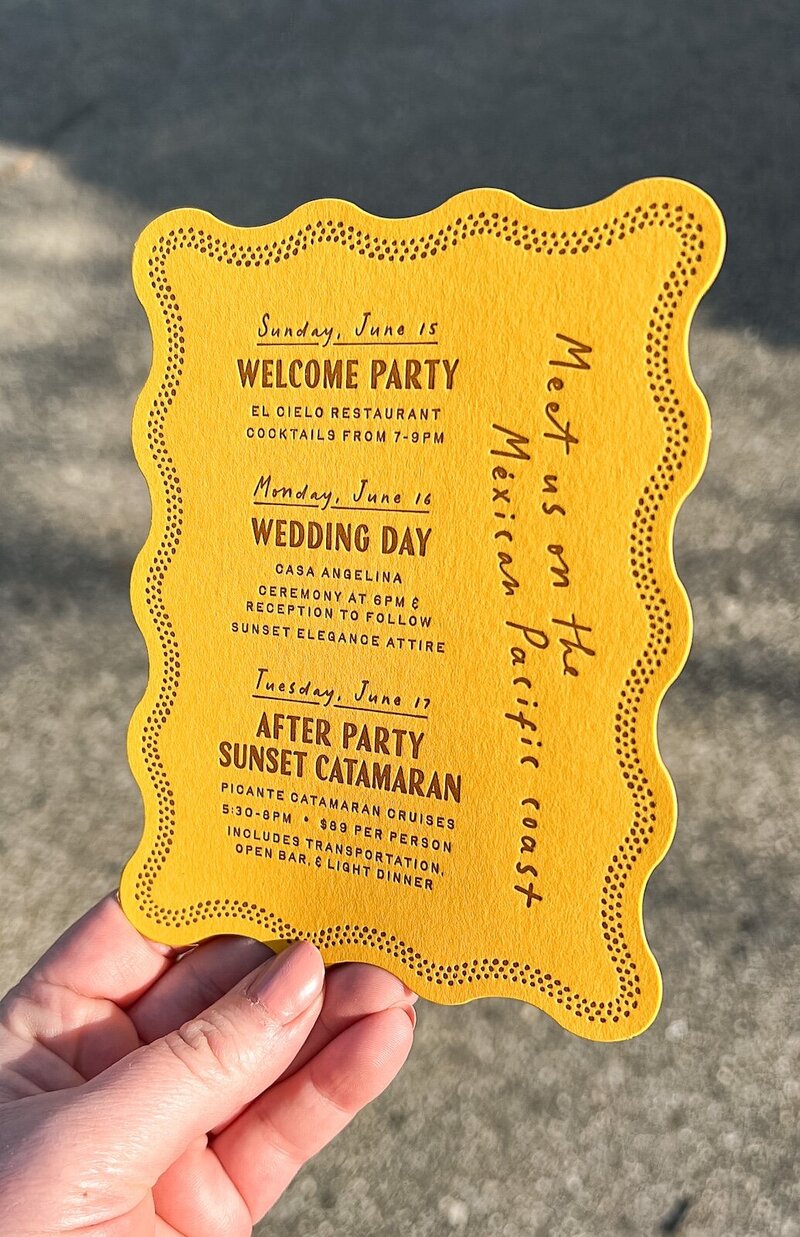 Sunday, June 15
WELCOME PARTY
EL CIELO RESTAURANT
COCKTAILS FROM 7-9PM
Monday, June 16
WEDDING DAY
CASA ANGELINA
CEREMONY AT 6PM &
RECEPTION TO FOLLOW
SUNSET ELEGANCE ATTIRE
Tuesday, June 17
AFTER PARTY
SUNSET CATAMARAN
PICANTE CATAMARAN CRUISES
5:30-8PM • $89 PER PERSON
INCLUDES TRANSPORTATION,
OPEN BAR, & LIGHT DINNER
Meet us on the
Mexican Pacific coast